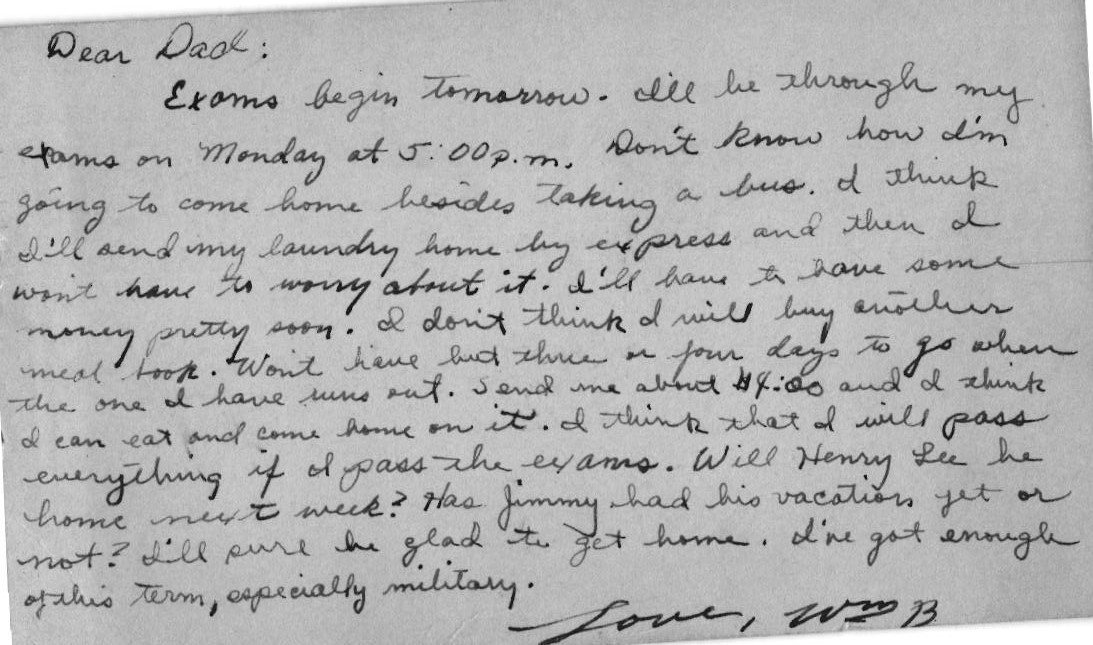 Dear Dad:
Exams begin tomorrow. I'll be through my
exams on Monday at 5:00 p.m. Don't know how I'm
going to come home besides taking a bus. I think
I'll send my laundry home by express and then I
won't have to worry about it. I'll have to have some
money pretty soon. I don't think I will buy another
meal book. Won't have but three or four days to go when
the one I have runs out. Send me about $4:00 and I think
I can eat and come home on it. I think that I will pass
everything if I pass the exams. Will Henry Lee be
home next week? Has Jimmy had his vacation yet or
not? I'll sure be glad to get home. I've got enough
of this term, especially military.
Love, Wm B